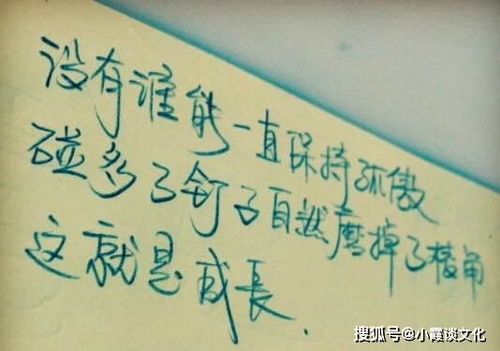 没有谁能一直保持孤傲
碰多了钉子自然磨掉了棱角
这就是成長.
搜狐号@小霞谈文化